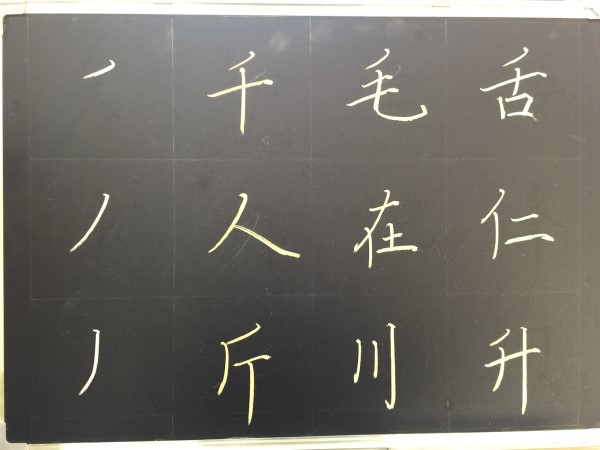 ㇒ 千 毛 舌
丿 人 在 仁
丿 斤 川 升